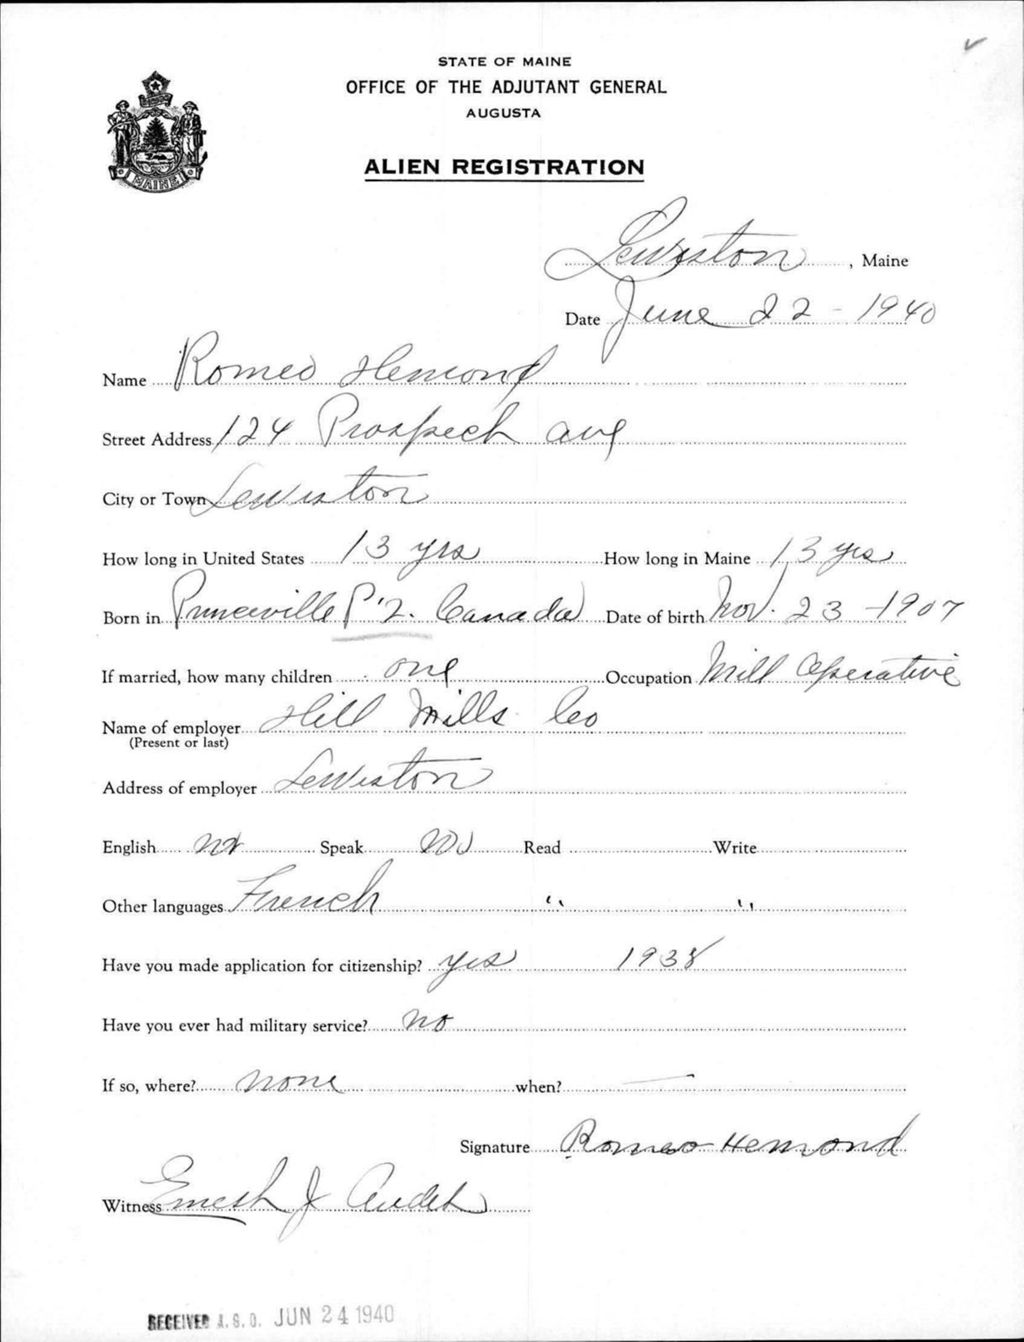 STATE OF MAINE
OFFICE OF THE ADJUTANT GENERAL
AUGUSTA
ALIEN REGISTRATION
MAINE
Lewiston, Maine
Date June 22 - 1940
Name Romeo Hemond
Street Address 124 Prospect Ave
City or Town Lewiston
How long in United States 13 yrs How long in Maine 13 yrs
Born in Princeville P.Q. Canada Date of birth Nov. 23 - 1907
If married, how many children one Occupation Mill Operative
Name of employer Hill Mills Co
(Present or last)
Address of employer Lewiston
English no Speak no Read Write
Other languages French " "
Have you made application for citizenship? yes 1938
Have you ever had military service? no
If so, where? none when? —
Signature Romeo Hemond
Witness Ernest J Audet
RECEIVED A.G.O. JUN 24 1940